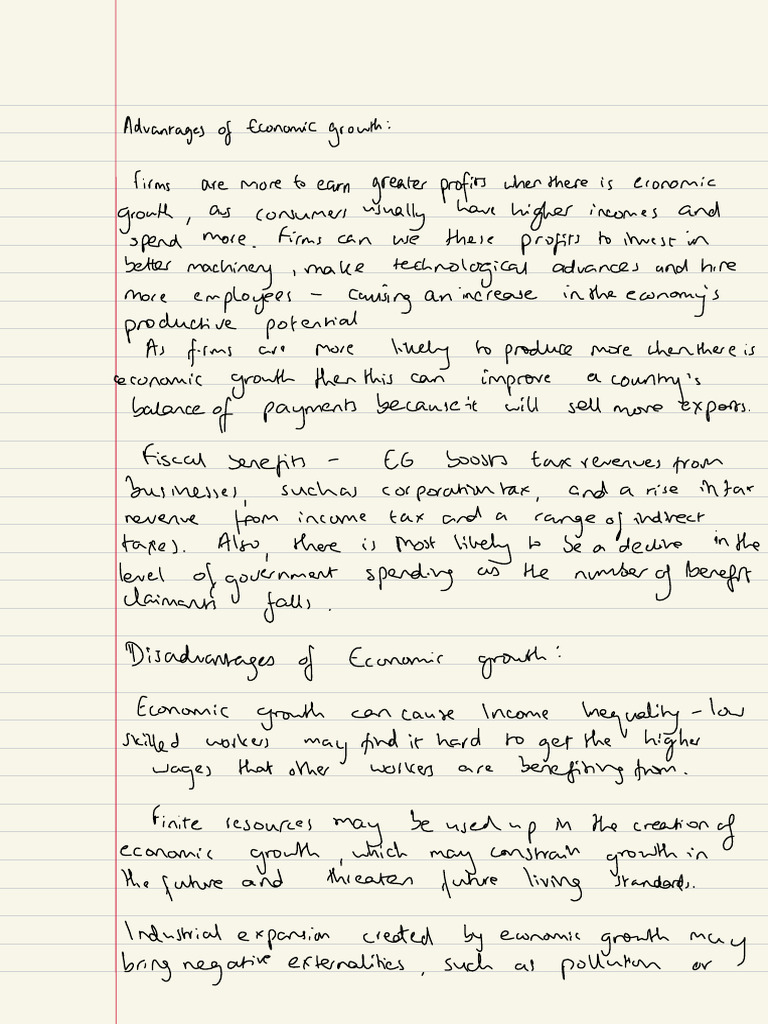 Advantages of Economic growth:
Firms are more to earn greater profits when there is economic
growth, as consumers usually have higher incomes and
spend more. Firms can use these profits to invest in
better machinery, make technological advances and hire
more employees - causing an increase in the economy's
productive potential
As firms are more likely to produce more when there is
economic growth then this can improve a country's
balance of payments because it will sell more exports.
Fiscal benefits - EG boosts tax revenues from
businesses, such as corporation tax, and a rise in tax
revenue from income tax and a range of indirect
taxes. Also, there is most likely to be a decline in the
level of government spending as the number of benefit
claimants falls.
Disadvantages of Economic growth:
Economic growth can cause Income Inequality - low
skilled workers may find it hard to get the higher
wages that other workers are benefiting from.
Finite resources may be used up in the creation of
economic growth, which may constrain growth in
the future and threaten future living standards.
Industrial expansion created by economic growth may
bring negative externalities, such as pollution or